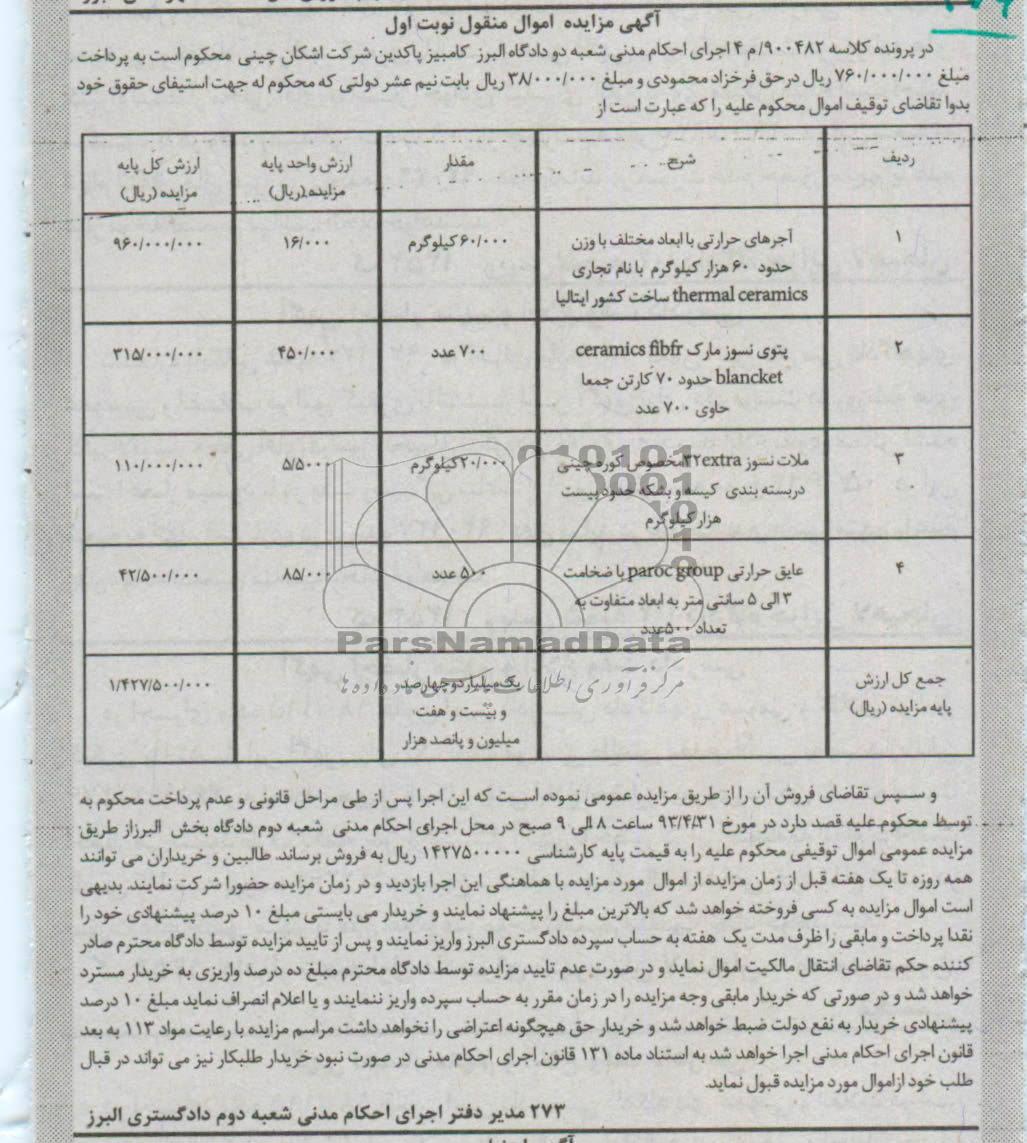 آگهی مزایده اموال منقول نوبت اول
در پرونده کلاسه ۹۰۰۴۸۲/م ۴ اجرای احکام مدنی شعبه دو دادگاه البرز کامبیز پاکدین شرکت اشکان چینی محکوم است به پرداخت
مبلغ ۷۶۰/۰۰۰/۰۰۰ ریال درحق فرخزاد محمودی و مبلغ ۳۸/۰۰۰/۰۰۰ ریال بابت نیم عشر دولتی که محکوم له جهت استیفای حقوق خود
بدوا تقاضای توقیف اموال محکوم علیه را که عبارت است از
ردیف شرح مقدار ارزش واحد پایه مزایده(ریال) ارزش کل پایه مزایده (ریال)
۱ آجرهای حرارتی با ابعاد مختلف با وزن ۶۰/۰۰۰کیلوگرم ۱۶/۰۰۰ ۹۶۰/۰۰۰/۰۰۰
حدود ۶۰ هزار کیلوگرم با نام تجاری
thermal ceramics ساخت کشور ایتالیا
۲ پتوی نسوز مارک ceramics fibfr ۷۰۰ عدد ۴۵۰/۰۰۰ ۳۱۵/۰۰۰/۰۰۰
blancket حدود ۷۰ کارتن جمعا
حاوی ۷۰۰ عدد
۳ ملات نسوز ۳۲extra مخصوص کوره چینی ۲۰/۰۰۰کیلوگرم ۵/۵۰۰۰ ۱۱۰/۰۰۰/۰۰۰
دربسته بندی کیسه و بشکه حدود بیست
هزار کیلوگرم
۴ عایق حرارتی paroc group با ضخامت ۵۰۰ عدد ۸۵/۰۰۰ ۴۲/۵۰۰/۰۰۰
۳ الی ۵ سانتی متر به ابعاد متفاوت به
تعداد ۵۰۰عدد
ParsNamadData
مرکز فرآوری اطلاعات
جمع کل ارزش یک میلیاردوچهارصد ۱/۴۲۷/۵۰۰/۰۰۰
پایه مزایده (ریال) و بیست و هفت
میلیون و پانصد هزار
و سپس تقاضای فروش آن را از طریق مزایده عمومی نموده است که این اجرا پس از طی مراحل قانونی و عدم پرداخت محکوم به
توسط محکوم علیه قصد دارد در مورخ ۹۳/۴/۳۱ ساعت ۸ الی ۹ صبح در محل اجرای احکام مدنی شعبه دوم دادگاه بخش البرزاز طریق
مزایده عمومی اموال توقیفی محکوم علیه را به قیمت پایه کارشناسی ۱۴۲۷۵۰۰۰۰۰ ریال به فروش برساند. طالبین و خریداران می توانند
همه روزه تا یک هفته قبل از زمان مزایده از اموال مورد مزایده با هماهنگی این اجرا بازدید و در زمان مزایده حضورا شرکت نمایند. بدیهی
است اموال مزایده به کسی فروخته خواهد شد که بالاترین مبلغ را پیشنهاد نمایند و خریدار می بایستی مبلغ ۱۰ درصد پیشنهادی خود را
نقدا پرداخت و مابقی را ظرف مدت یک هفته به حساب سپرده دادگستری البرز واریز نمایند و پس از تایید مزایده توسط دادگاه محترم صادر
کننده حکم تقاضای انتقال مالکیت اموال نماید و در صورت عدم تایید مزایده توسط دادگاه محترم مبلغ ده درصد واریزی به خریدار مسترد
خواهد شد و در صورتی که خریدار مابقی وجه مزایده را در زمان مقرر به حساب سپرده واریز ننمایند و یا اعلام انصراف نماید مبلغ ۱۰ درصد
پیشنهادی خریدار به نفع دولت ضبط خواهد شد و خریدار حق هیچگونه اعتراضی را نخواهد داشت مراسم مزایده با رعایت مواد ۱۱۳ به بعد
قانون اجرای احکام مدنی اجرا خواهد شد به استناد ماده ۱۳۱ قانون اجرای احکام مدنی در صورت نبود خریدار طلبکار نیز می تواند در قبال
طلب خود ازاموال مورد مزایده قبول نماید.
۲۷۳ مدیر دفتر اجرای احکام مدنی شعبه دوم دادگستری البرز